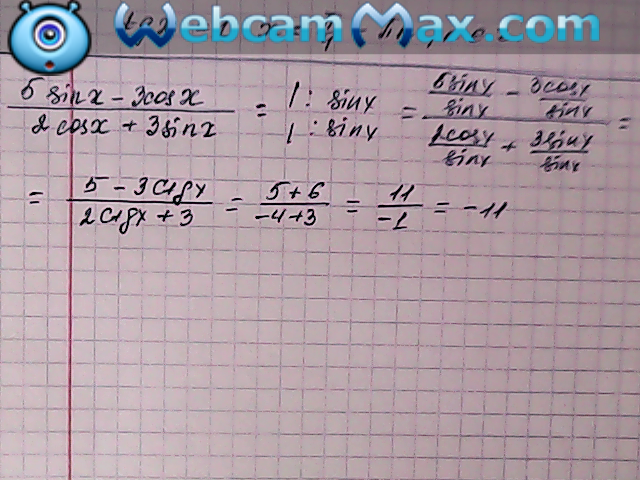 WebcamMax.com
5 sin x − 3 cos x / 2 cos x + 3 sin x = 1 : sin x / 1 : sin x = 5 sin x / sin x − 3 cos x / sin x / 2 cos x / sin x + 3 sin x / sin x =
= 5 − 3 ctg x / 2 ctg x + 3 = 5 + 6 / −4 + 3 = 11 / −1 = −11